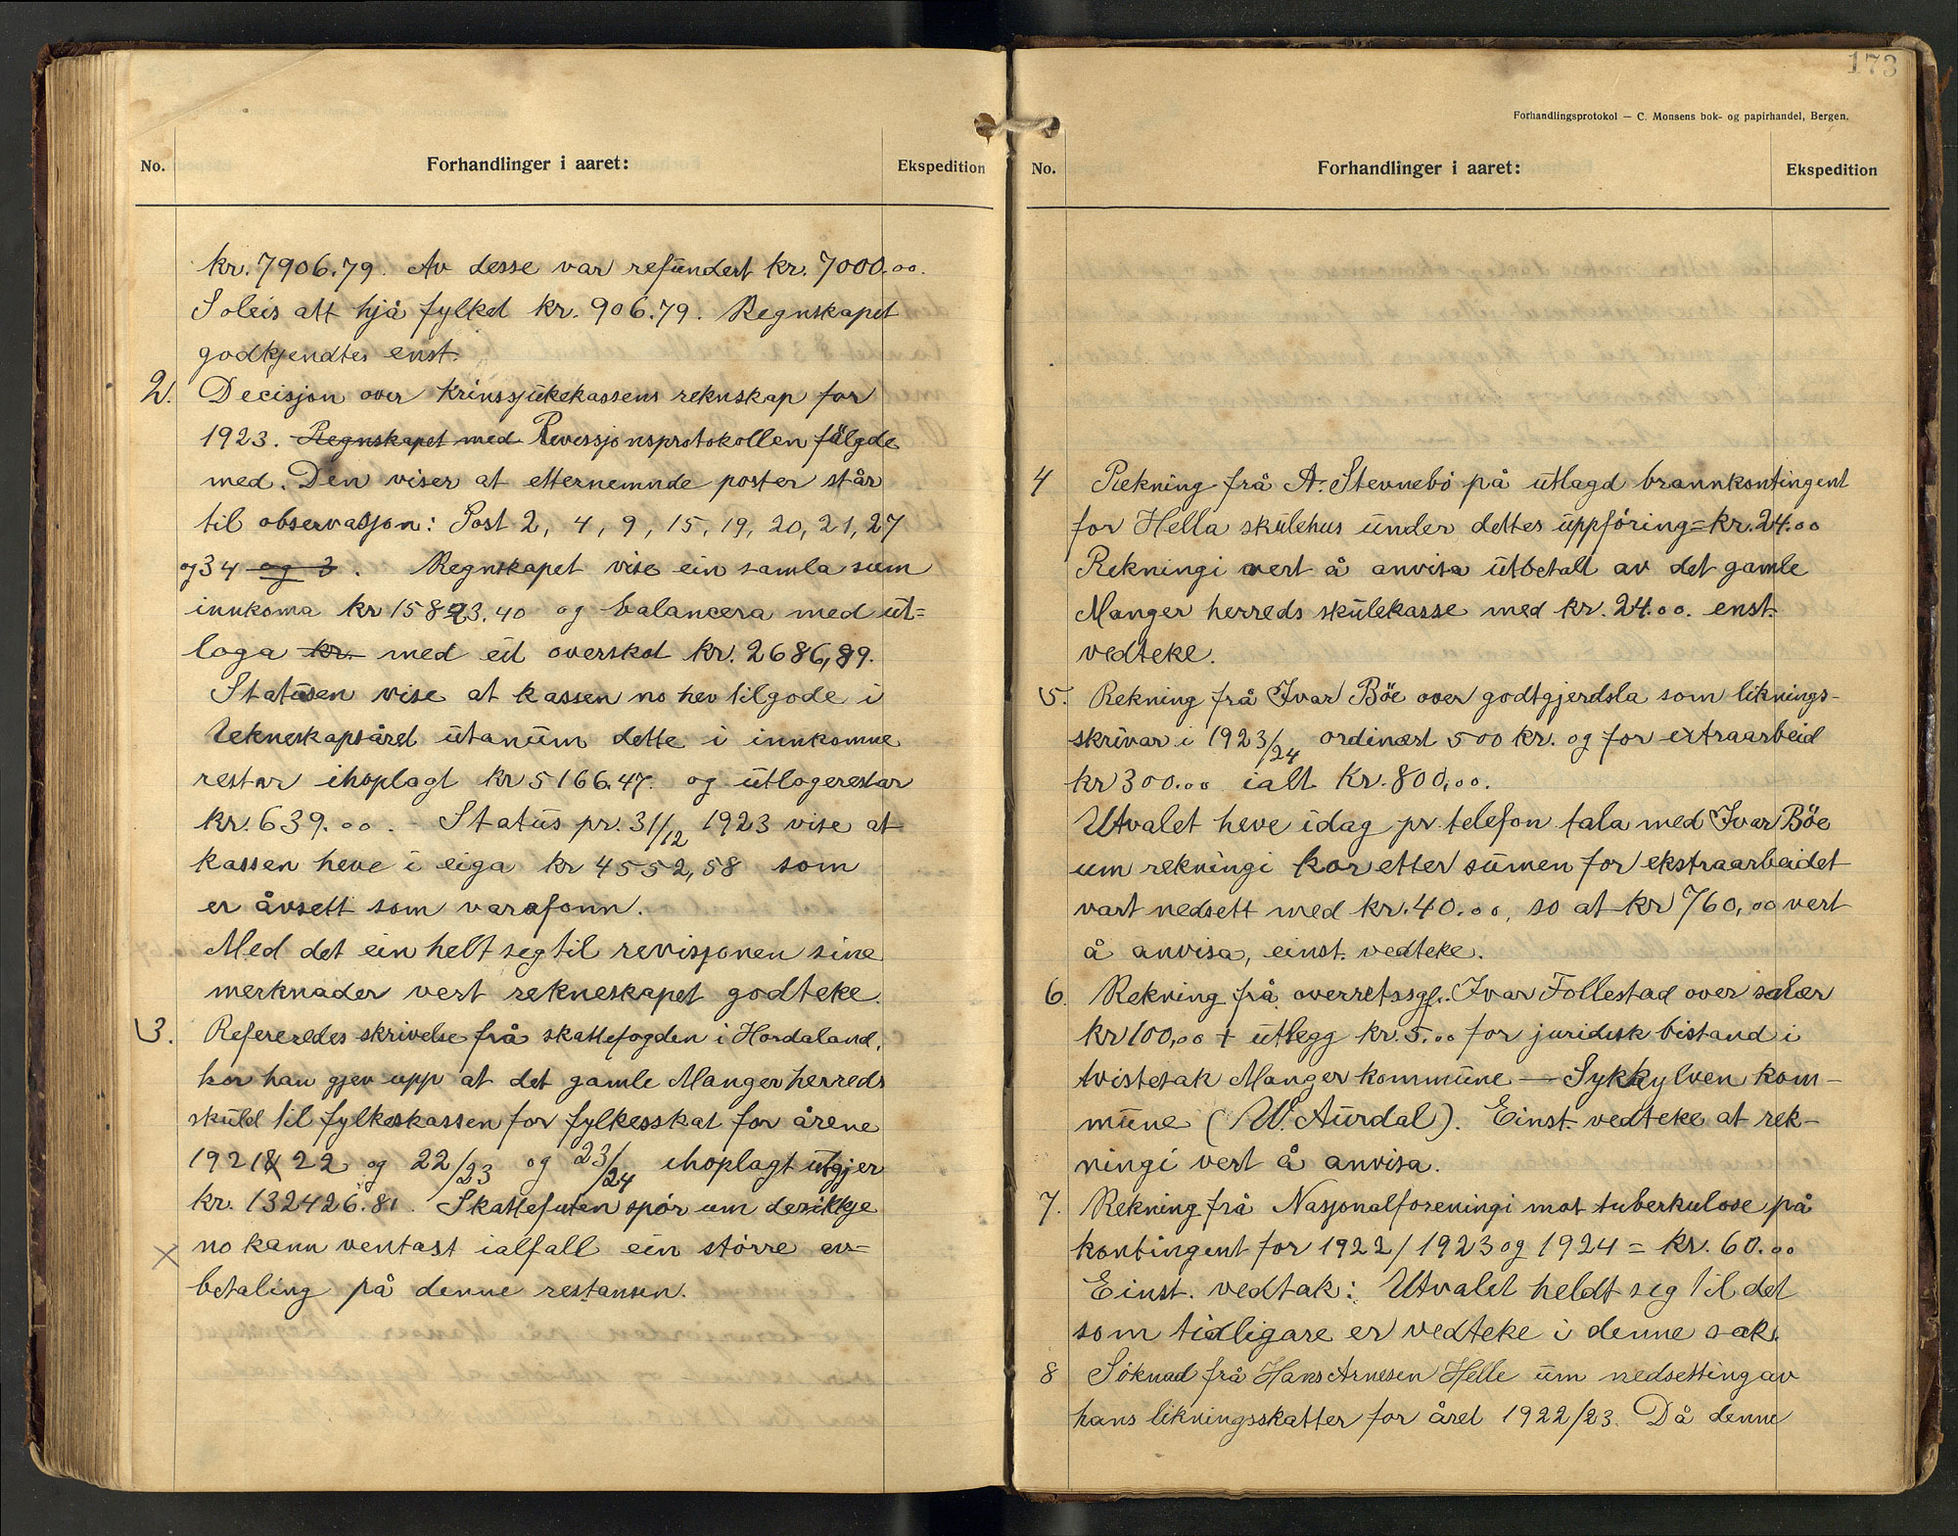 No.
Forhandlinger i aaret:
Ekspedition
kr. 7906.79. Av desse var refundert kr. 7000.00.
Soleis att hjå fylket kr. 906.79. Regnskapet
godkjendtes enst.
2. Decisjon over krinssjukekassens reknskap for
1923. Regnskapet med Revissjonsprotokollen fålgde
med. Den viser at etternemnde poster står
til observasjon: Post 2, 4, 9, 15, 19, 20, 21, 27
og 34 og 3. Regnskapet vise ein samla sum
innkoma kr 15893.40 og balancera med ut=
loga kr. med eit overskot kr. 2686,89.
Statusen vise at kassen no hev tilgode i
rekneskapsåret utanum dette i innkomne
restar ihoplagt kr 5166.47. og utlogerestar
kr. 639.00. - Status pr. 31/12 1923 vise at
kassen heve i eiga kr 4552,58 som
er åvsett som varafonn.
Med det ein helt seg til revisjonen sine
merknader vert rekneskapet godteke.
3. Refereredes skrivelse frå skattefogden i Hordaland,
kor han gjev upp at det gamle Manger herreds
skuld til fylkeskassen for fylkesskat for årene
1921 22 og 22/23 og 23/24 ihoplagt utgjer
kr. 132426.81. Skattefuten spör um der ikkje
no kann ventast ialfall ein större av=
betaling på denne restansen.
173
Forhandlingsprotokol — C. Monsens bok- og papirhandel, Bergen.
No.
Forhandlinger i aaret:
Ekspedition
4 Rekning frå A. Stevnebö på utlagd brannkontingent
for Hella skulehus under dettes uppföring = kr. 24.00
Rekningi vert å anvisa utbetalt av det gamle
Manger herreds skulekasse med kr. 24.00. enst.
vedteke.
5. Rekning frå Ivar Böe over godtgjerdsla som liknings-
skrivar i 1923/24 ordinært 500 kr. og for extraarbeid
kr 300.00 ialt kr. 800,00.
Utvalet heve idag pr. telefon tala med Ivar Böe
um rekningi kor etter sumen for ekstraarbeidet
vart nedsett med kr. 40.00, so at kr 760,00 vert
å anvisa, einst. vedteke.
6. Rekning frå overretssgf. Ivar Follestad over salær
kr 100,00 + utlegg kr. 5.00 for juridisk bistand i
tvistesak Manger kommune — Sykkylven kom-
mune (W. Aurdal). Einst. vedteke at rek-
ningi vert å anvisa.
7. Rekning frå Nasjonalforeningi mot tuberkulose på
kontingent for 1922/1923 og 1924 = kr. 60.00
Einst. vedtak: Utvalet heldt seg til det
som tidligare er vedteke i denne sak.
8 Söknad frå Hans Arnesen Helle um nedsetting av
hans likningsskatter for året 1922/23. Då denne